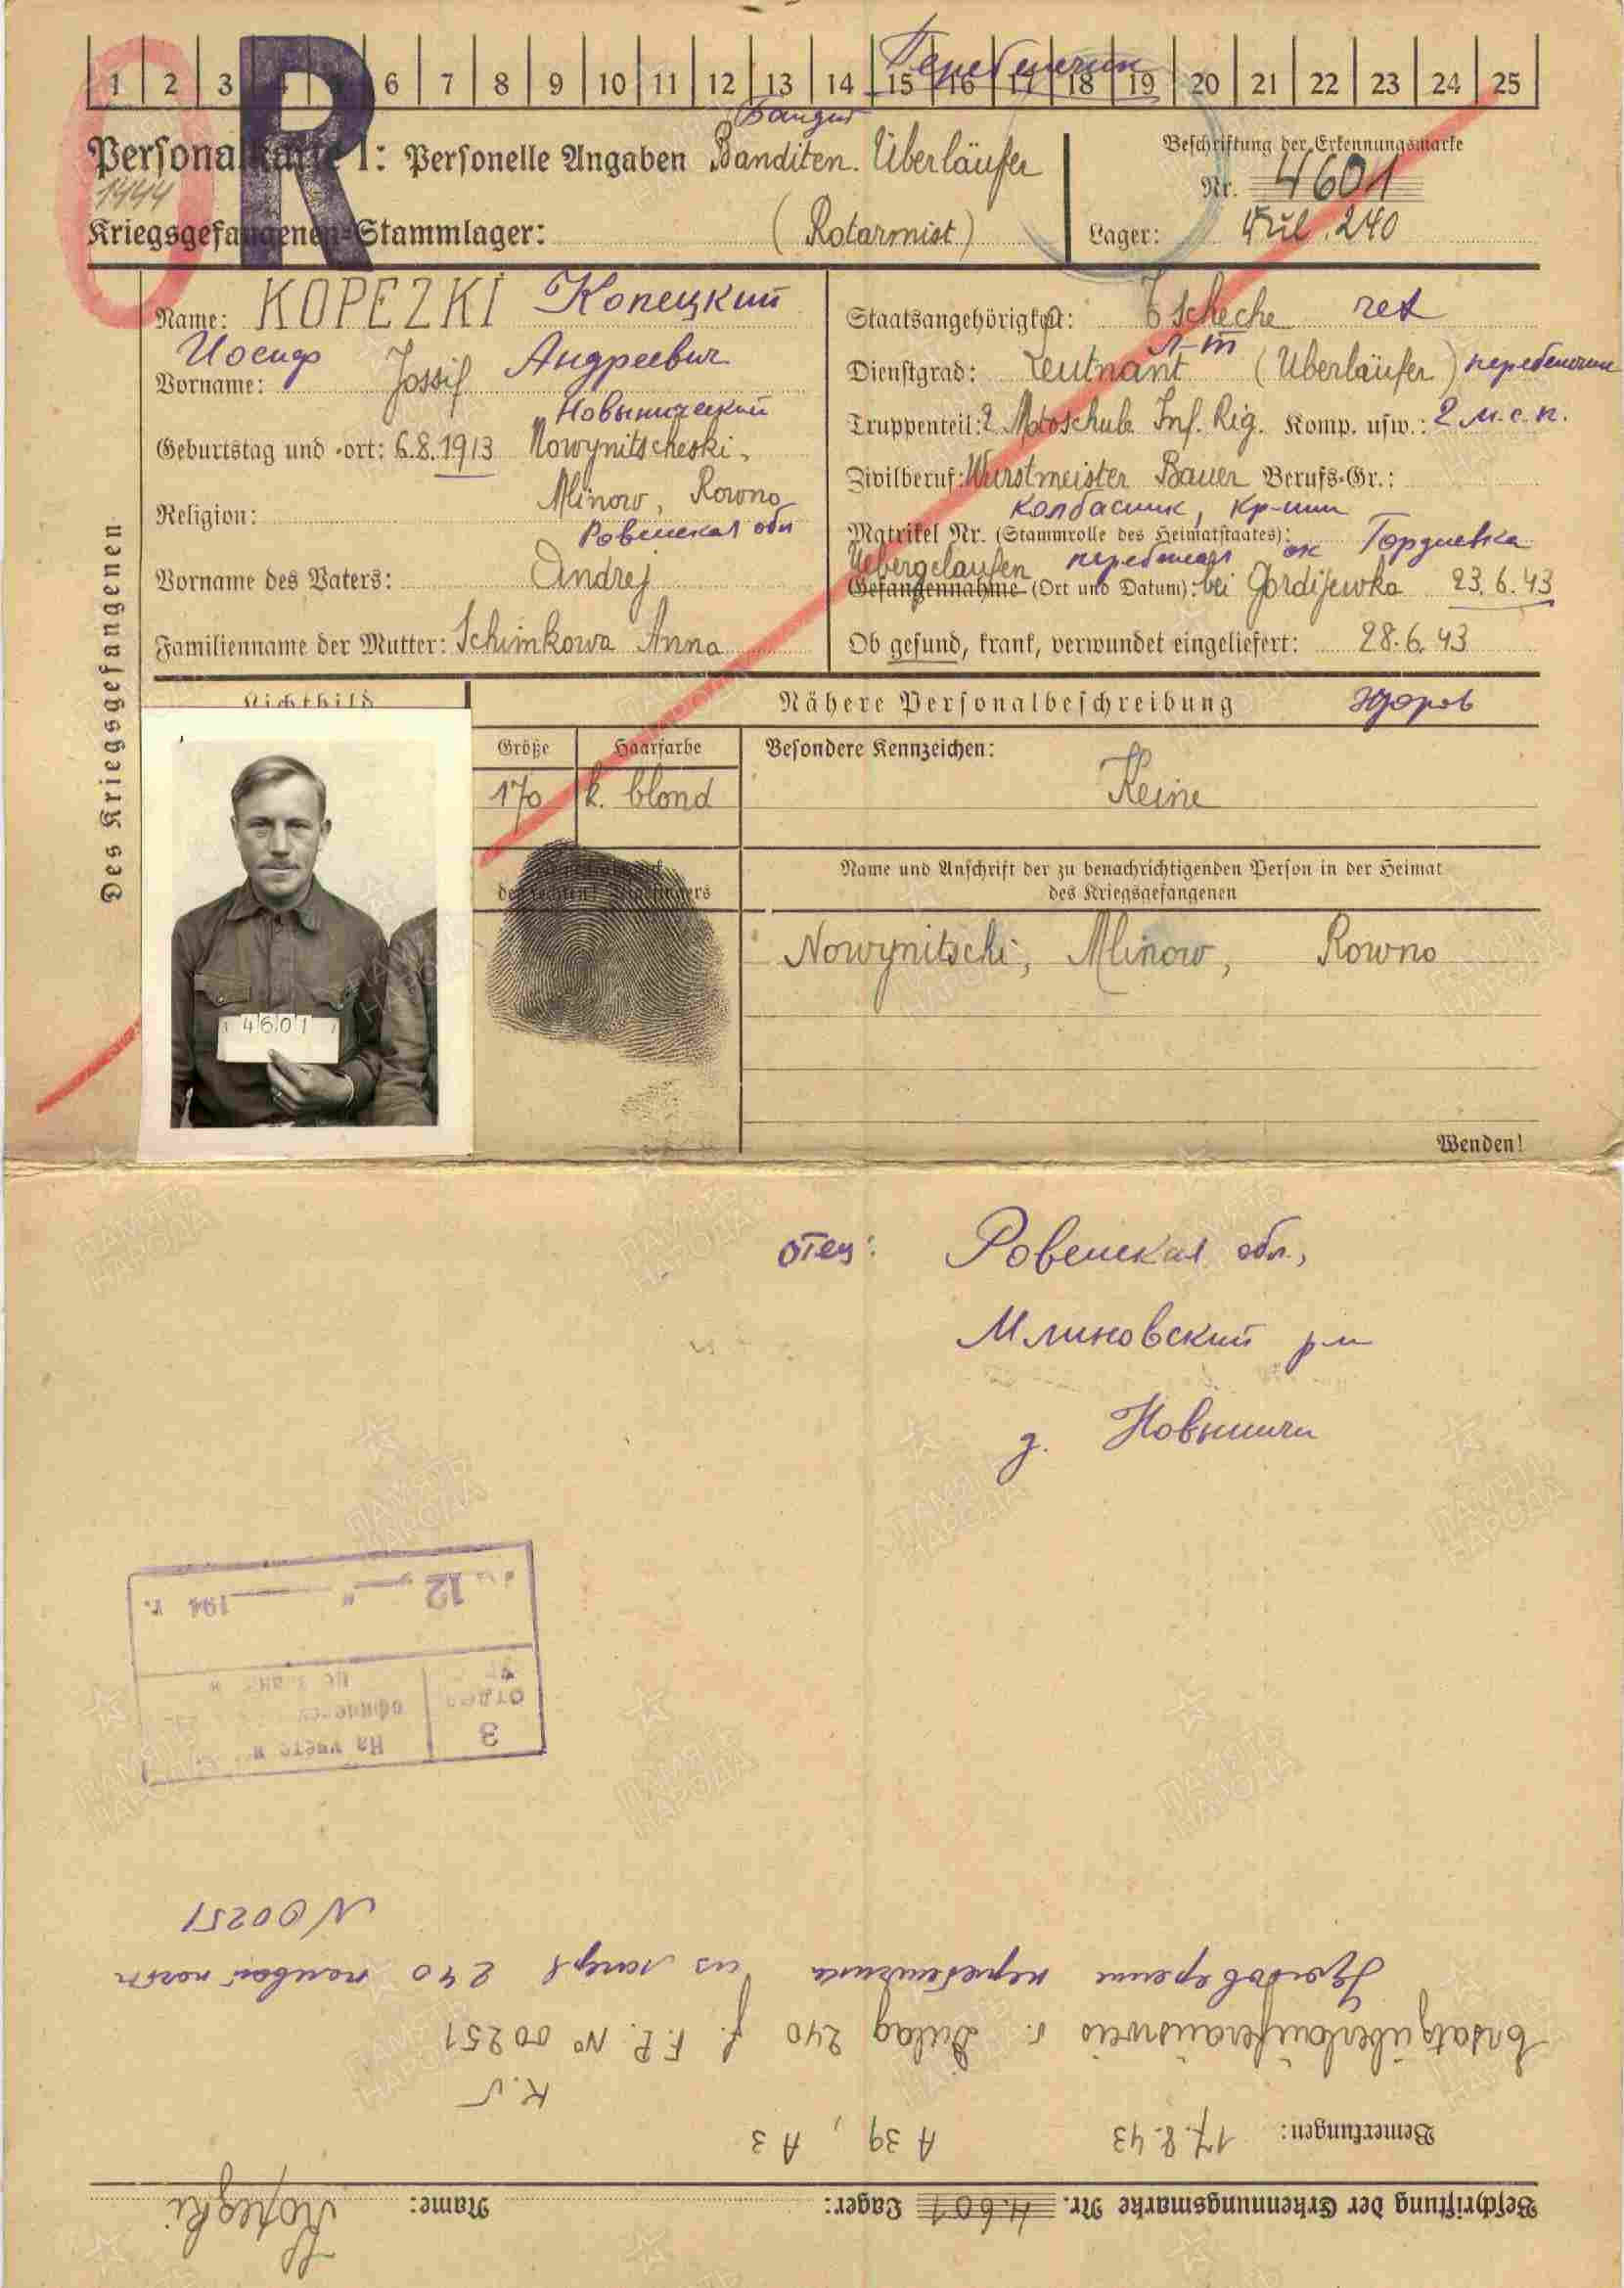 1 2 3 6 7 8 9 10 11 12 13 14 15 16 17 18 19 20 21 22 23 24 25
Перебежчик
Бандит
Personalkarte I: Personelle Angaben Banditen. Überläufer
Beschriftung der Erkennungsmarke
Nr. 4601
1444
Kriegsgefangenen-Stammlager: (Rotarmist)
Lager: 240
R
Des Kriegsgefangenen
Name: KOPEZKI Копецкий
Иосиф Андреевич
Vorname: Jossif
Новынический
Geburtstag und -ort: 6.8.1913 Nowynitscheski,
Mlinow, Rowno
Religion:
Ровенская обл
Vorname des Vaters: Andrej
Familienname der Mutter: Schimkowa Anna
Staatsangehörigkeit: Tscheche чех
л-т
Dienstgrad: Leutnant (Überläufer) перебежчик
Truppenteil: 2 Motoschub. Inf. Rig. Komp. usw.: 2 м.с.п.
Zivilberuf: Wurstmeister Bauer Berufs-Gr.:
колбасник, кр-нин
Matrikel Nr. (Stammrolle des Heimatstaates):
Uebergelaufen перебежал ок Гордиевка
Gefangennahme (Ort und Datum): bei Gordijewka 23.6.43
Ob gesund, krank, verwundet eingeliefert: 28.6.43
Lichtbild
Nähere Personalbeschreibung здоров
Größe
Haarfarbe
Besondere Kennzeichen:
170
k. blond
Keine
des rechten Zeigefingers
Name und Anschrift der zu benachrichtigenden Person in der Heimat
des Kriegsgefangenen
Nowynitschi, Mlinow, Rowno
4601
Wenden!
отец: Ровенская обл.,
Млиновский р-н
д. Новыничи
"12" 194 г.
На учете
3
отдел
N 00251
Удостоверение перебежчика из лагеря 240 полевая почта
Ersatzüberläuferausweis v. Dulag 240 f. F.P. No 00251
Bemerkungen: 17.8.43 A 39, A 3
Beschriftung der Erkennungsmarke Nr. 4601 Lager: Name: Kopezki
ПАМЯТЬ
НАРОДА